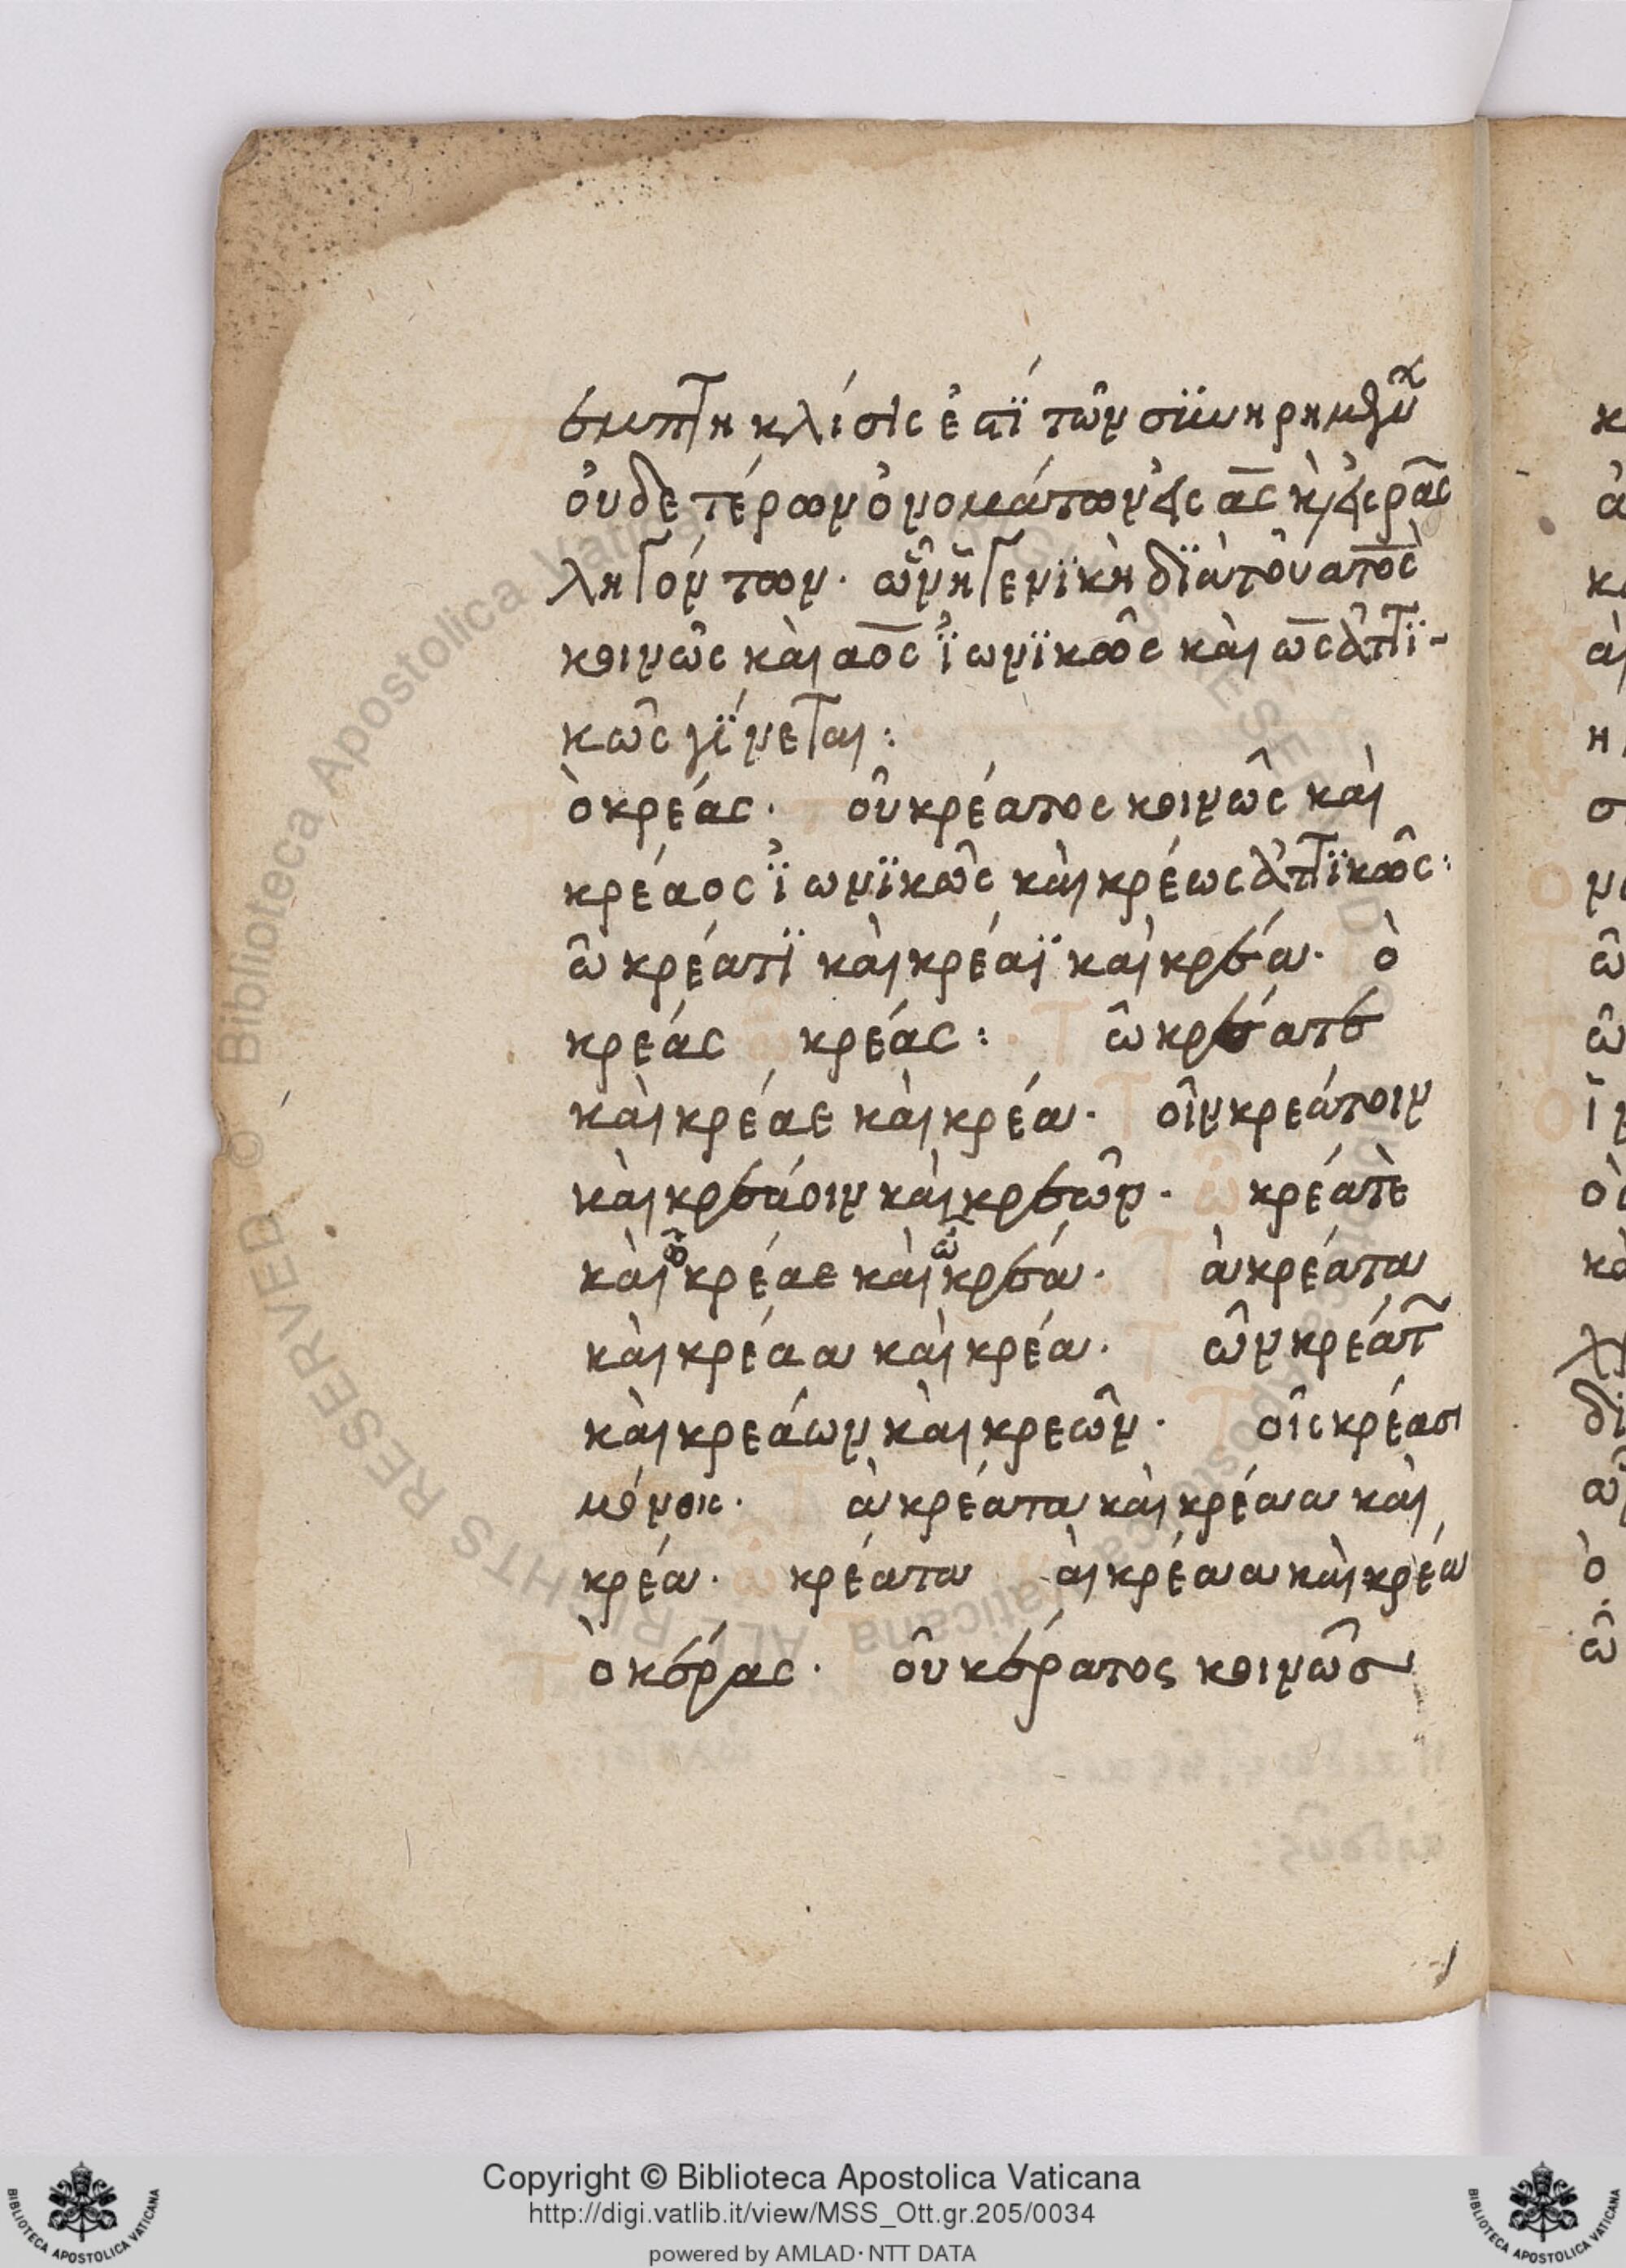 έμπτη κλίσις ἐστὶ τῶν συνηρημένων
οὐδετέρων ὀνομάτων εἰς ας καὶ εἰς ρας
ληγόντων. ὧν ἡ γενϊκὴ δϊὰ τοῦ ατος
κοινῶς καὶ αος ἰωνϊκῶς καὶ ως ἀττϊ-
κῶς γΐνεται:
ὸ κρέας. οῦ κρέατος κοινῶς καὶ
κρέαος ἰωνϊκῶς καὶ κρέως ἀττϊκῶς:
ῶ κρέατϊ καὶ κρέαϊ καὶ κρέα. ὸ
κρέας κρέας: ὼ κρέατε
καὶ κρέαε καὶ κρέα. οῖν κρεάτοιν
καὶ κρεάοιν καὶ κρεῶν. κρέατε
καὶ ὦ κρέαε καὶ ὦ κρέα. ὰ κρέατα
καὶ κρέαα καὶ κρέα. ῶν κρεάτων
καὶ κρεάων καὶ κρεῶν. οῖς κρέασι
μόνως. ὰ κρέατα καὶ κρέαα καὶ
κρέα. κρέατα αὶ κρέαα καὶ κρέα
ὸ κέρας. οῦ κέρατος κοινῶς
Copyright © Biblioteca Apostolica Vaticana
http://digi.vatlib.it/view/MSS_Ott.gr.205/0034
powered by AMLAD·NTT DATA